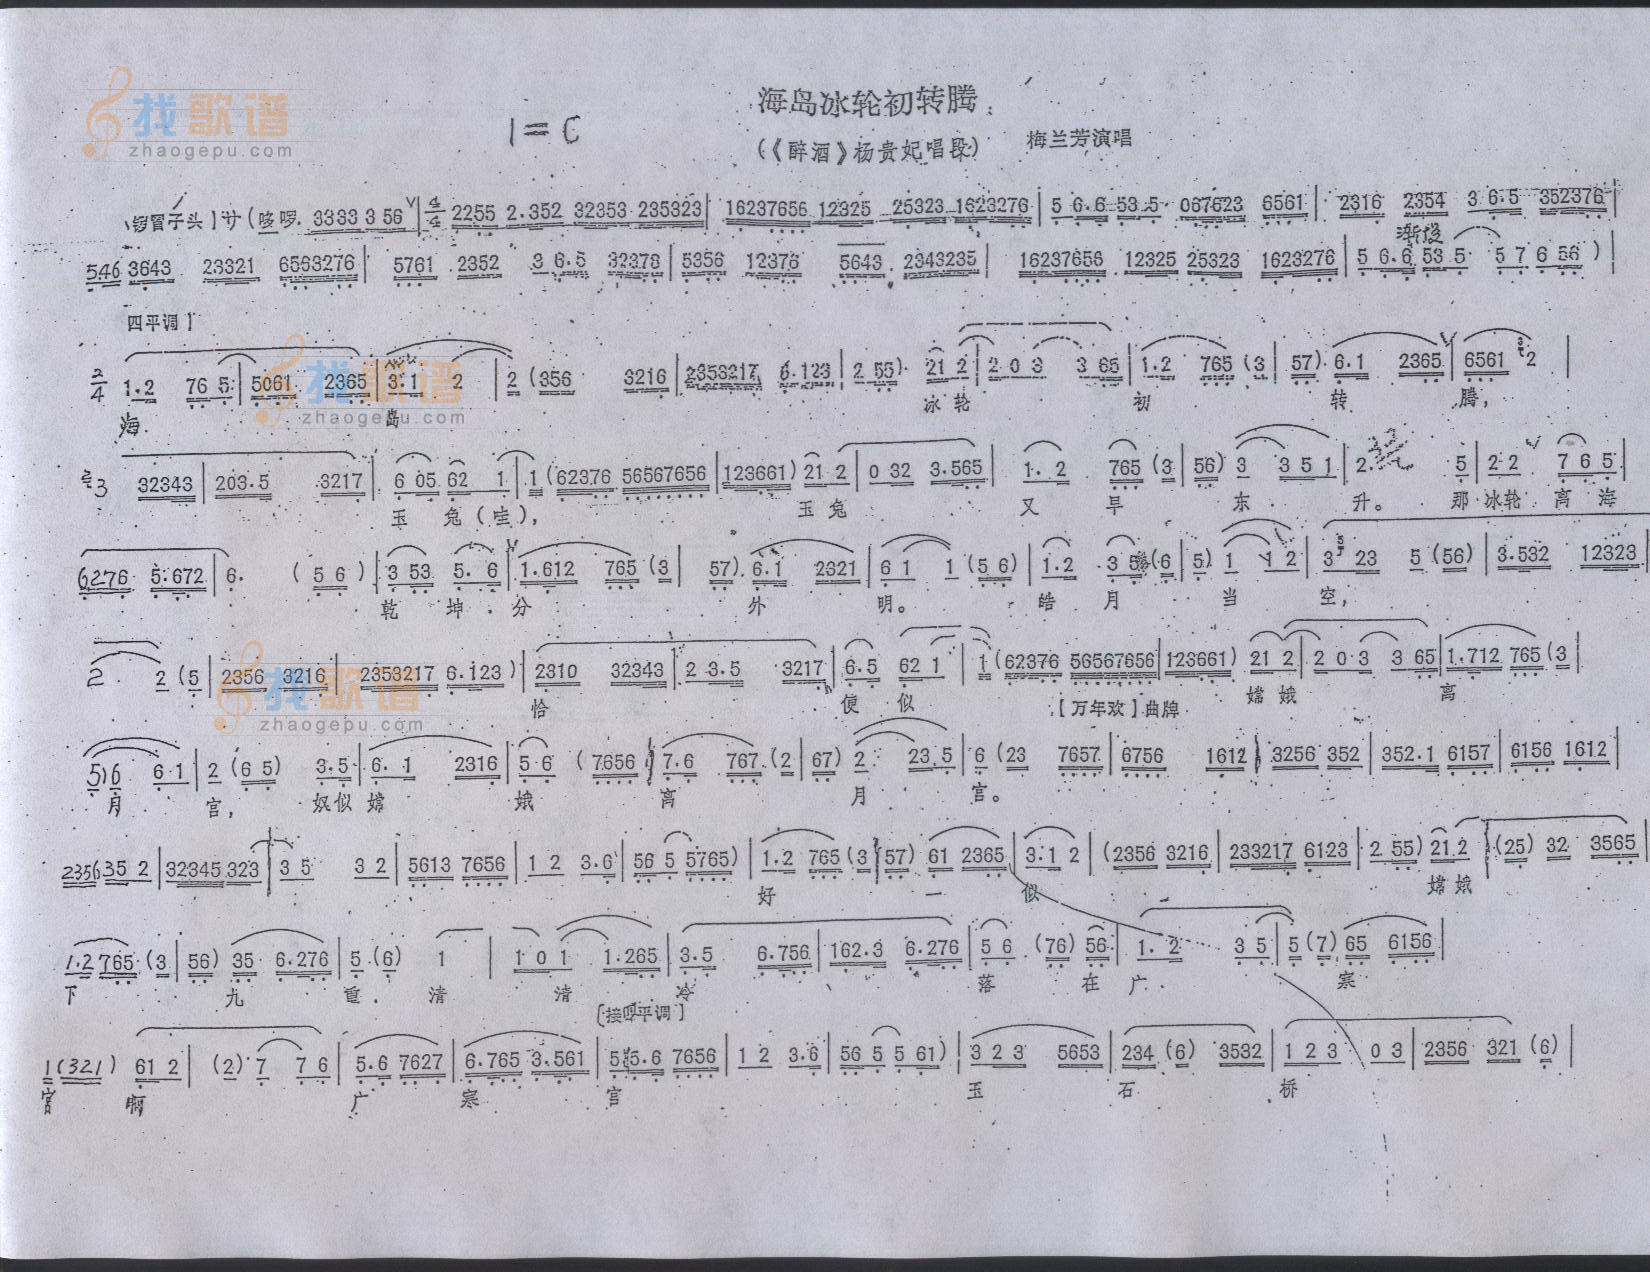 海岛冰轮初转腾
1=C
(《醉酒》杨贵妃唱段)
梅兰芳演唱
找歌谱
zhaogepu.com
锣冒子头】サ(哆啰 3333 3 56 | 4/4 2255 2.352 32353 235323 | 16237656 12325 25323 1623276 | 5 6.6 53 5 067623 6561 | 2316 2354 3 6.5 352376 |
渐慢
546 3643 23321 6563276 | 5761 2352 3 6.5 32376 | 5356 12376 5643 2343235 | 16237656 12325 25323 1623276 | 5 6.6 53 5 5 7 6 56 ) |
四平调】
2/4 1.2 76 5 | 5061 2365 | 3.1 2 | 2 (356 3216 | 2353217 6.123 | 2 55) 21 2 | 2 0 3 3 65 | 1.2 765 (3 | 57) 6.1 2365 | 6561 2 |
海 岛 冰 轮 初 转 腾,
找歌谱
zhaogepu.com
3 32343 | 203.5 3217 | 6 05 62 1 | 1 (62376 56567656 | 123661) 21 2 | 0 32 3.565 | 1. 2 765 (3 | 56) 3 3 5 1 | 2. 5 | 2 2 7 6 5 |
玉 兔(哇), 玉 兔 又 早 东 升。 那 冰轮 离 海
6276 5.672 | 6. ( 5 6 ) | 3 53 5. 6 | 1.612 765 (3 | 57) 6.1 2321 | 6 1 1 (5 6) | 1.2 3 5 (6 | 5) 1 1 2 | 3 23 5 (56) | 3.532 12323 |
乾 坤 分 外 明。 皓 月 当 空,
2. 2 (5 | 2356 3216 | 2353217 6.123 ) | 2310 32343 | 2 3.5 3217 | 6.5 62 1 | 1 (62376 56567656 | 123661) 21 2 | 2 0 3 3 65 | 1.712 765 (3 |
恰 便 似 【万年欢】曲牌 嫦 娥 离
找歌谱
zhaogepu.com
5) 6 6 1 | 2 (6 5) 3.5 | 6. 1 2316 | 5 6 (7656 | 7.6 767 (2 | 67) 2 23.5 | 6 (23 7657 | 6756 1612 | 3256 352 | 352.1 6157 | 6156 1612 |
月 宫, 奴似 嫦 娥 离 月 宫。
2356 35 2 | 32345 323 | 3 5 3 2 | 5613 7656 | 1 2 3.6 | 56 5 5765) | 1.2 765 (3 | 57) 61 2365 | 3.1 2 | (2356 3216 | 233217 6123 | 2 55) 21.2 | (25) 32 3565 |
好 一 似 嫦 娥
1.2 765 (3 | 56) 35 6.276 | 5 (6) 1 | 1 0 1 1.265 | 3.5 6.756 | 162.3 6.276 | 5 6 (76) 56 | 1. 2 3 5 | 5 (7) 65 6156 |
下 九 重, 清 清 冷 、 落 在 广 寒
[接四平调]
1 (321) 61 2 | (2) 7 7 6 | 5.6 7627 | 6.765 3.561 | 5 5.6 7656 | 1 2 3.6 | 56 5 5 61) | 3 2 3 5653 | 234 (6) 3532 | 1 2 3 0 3 | 2356 321 (6) |
宫 啊 广 寒 宫 玉 石 桥